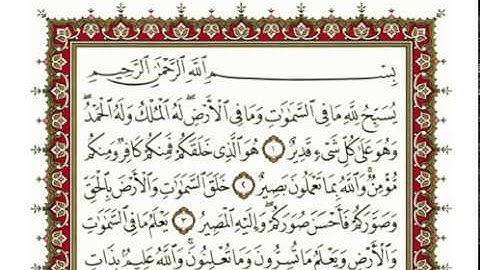 بِسْمِ ٱللَّهِ ٱلرَّحْمَٰنِ ٱلرَّحِيمِ
يُسَبِّحُ لِلَّهِ مَا فِي ٱلسَّمَٰوَٰتِ وَمَا فِي ٱلْأَرْضِ ۖ لَهُ ٱلْمُلْكُ وَلَهُ ٱلْحَمْدُ ۖ
وَهُوَ عَلَىٰ كُلِّ شَيْءٍ قَدِيرٌ ١ هُوَ ٱلَّذِي خَلَقَكُمْ فَمِنكُمْ كَافِرٌ وَمِنكُم
مُّؤْمِنٌ ۚ وَٱللَّهُ بِمَا تَعْمَلُونَ بَصِيرٌ ٢ خَلَقَ ٱلسَّمَٰوَٰتِ وَٱلْأَرْضَ بِٱلْحَقِّ
وَصَوَّرَكُمْ فَأَحْسَنَ صُوَرَكُمْ ۖ وَإِلَيْهِ ٱلْمَصِيرُ ٣ يَعْلَمُ مَا فِي ٱلسَّمَٰوَٰتِ
وَٱلْأَرْضِ وَيَعْلَمُ مَا تُسِرُّونَ وَمَا تُعْلِنُونَ ۚ وَٱللَّهُ عَلِيمٌۢ بِذَاتِ